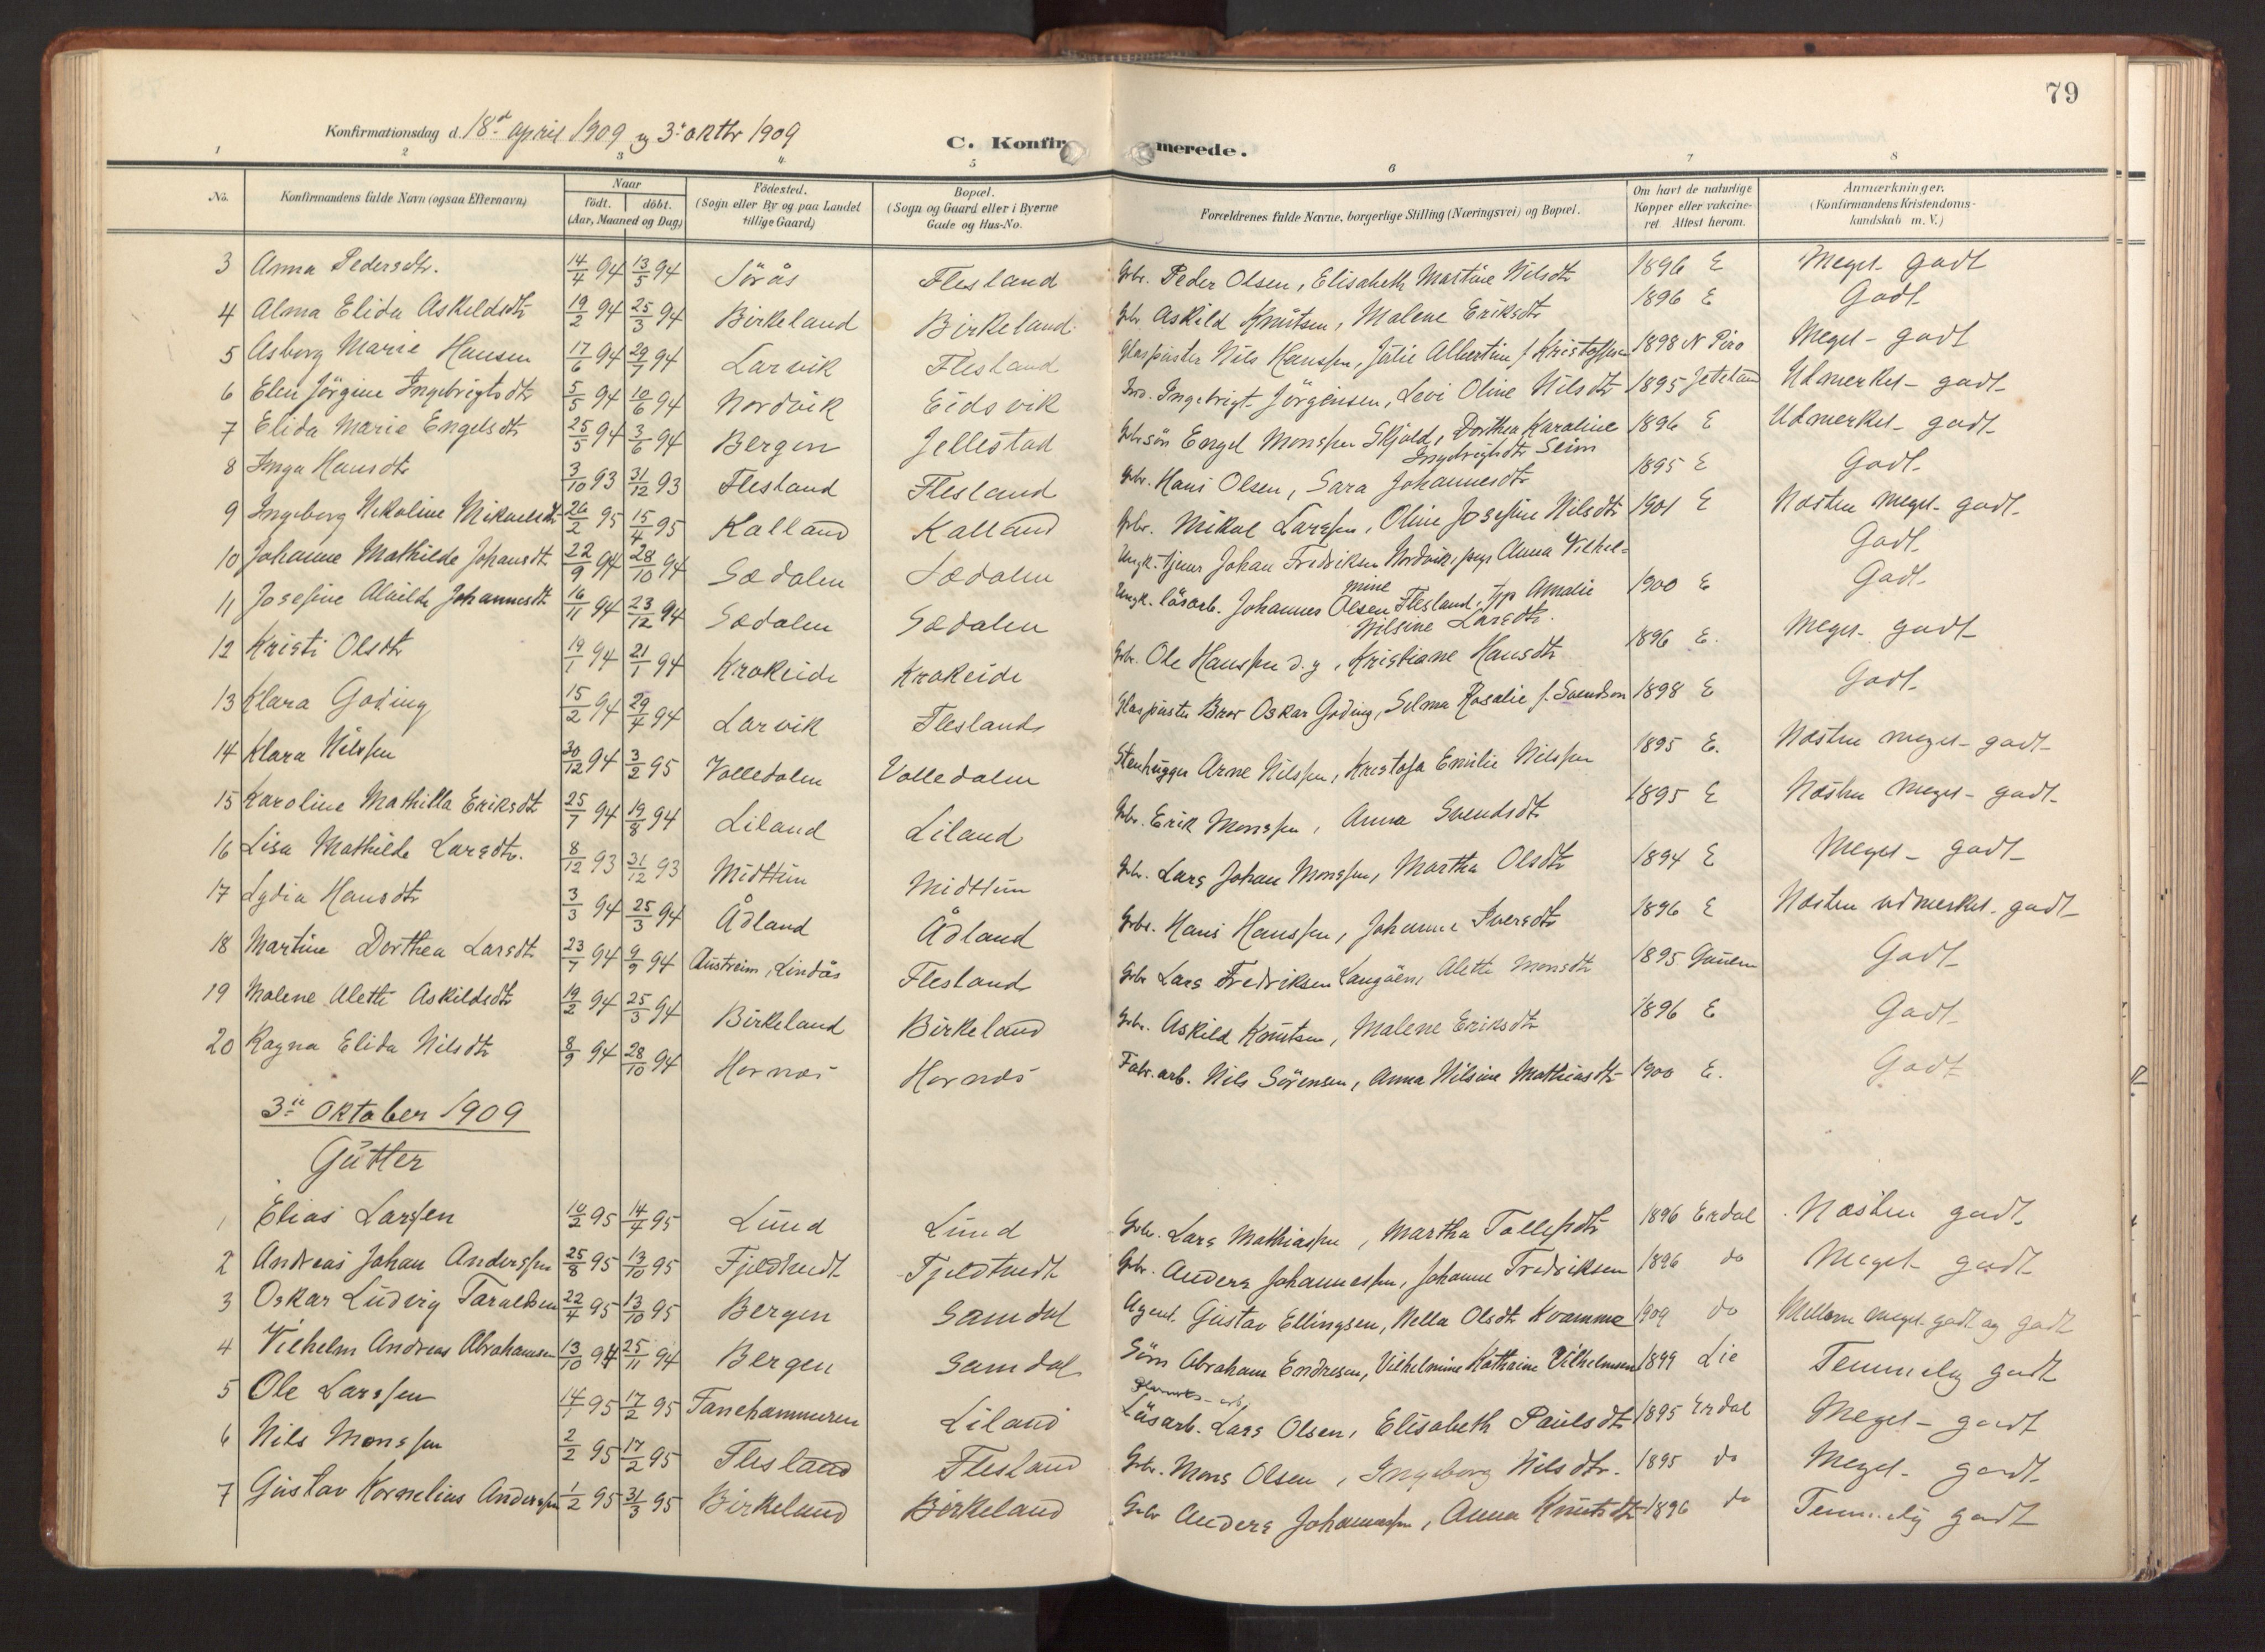 79
Konfirmationsdag d. 18de april 1909 og 3 oktbr 1909
C. Konfirmerede.
1 2 3 4. 5 6 7 8
No. Konfirmandens fulde Navn (ogsaa Efternavn) Naar födt. döbt. (Aar, Maaned og Dag) Födested. (Sogn eller By og paa Landet tillige Gaard) Bopæl. (Sogn og Gaard eller i Byerne Gade og Hus-No. Forældrenes fulde Navne, borgerlige Stilling (Næringsvei) og Bopæl. Om havt de naturlige Kopper eller vakcineret. Attest herom. Anmærkninger. (Konfirmandens Kristendomskundskab m. V.)
3 Anna Pedersdtr. 14/4 94 13/5 94 Sörås Flesland Gbr. Peder Olsen, Elisabeth Martine Nilsdtr 1896 E Meget godt
4 Alma Elida Askeldsdtr 19/2 94 25/3 94 Birkeland Birkeland Gbr Askild Knutsen, Malene Eriksdtr 1896 E Godt
5 Asborg Marie Hansen 17/6 94 29/7 94 Larvik Flesland Glaspuster Nils Hanssen, Julie Albertine f. Kristoffersen 1898 N Piro Meget godt
6 Elen Jörgine Ingebrigtsdtr 5/5 94 10/6 94 Nordvik Eidsvik Ingebrigt Jörgensen, Levi Oline Nilsdtr 1895 Udmerket godt
7 Elida Marie Engelsdtr 25/5 94 3/6 94 Bergen Jellestad Gbrsön Engel Monssen Skjold, Dorthea Karoline Ingebrigtsdtr Seim 1896 E Udmerket godt
8 Inga Hansdtr 3/10 93 31/12 93 Flesland Flesland Gbr. Hans Olsen, Sara Johannesdtr 1895 E Godt
9 Ingeborg Nikoline Mikaelsdtr 26/2 95 15/4 95 Kalland Kalland Gbr. Mikal Larssen, Oline Josefine Nilsdtr 1901 E Næsten meget godt
10 Johanne Mathilde Johansdtr 22/9 94 28/10 94 Sædalen Sædalen Ungk. tjener Johan Fredriksen Nordvik, pige Anna Vilhelmine Godt
11 Josefine Alvilde Johannesdtr 16/11 94 23/12 94 Sædalen Sædalen Ungk. lösarb. Johannes Olsen Flesland, Amalie Nilsine Larsdtr. 1900 E Godt
12 Kristi Olsdtr 19/1 94 21/1 94 Krokeide Krokeide Gbr. Ole Hanssen d.y, Kristiane Hansdtr 1896 E. Meget godt
13 Klara Goding 15/2 94 29/4 94 Larvik Flesland Glaspuster Bror Oskar Goding, Selma Rosalie f. Svendson 1898 E Godt
14 Klara Nilssen 30/12 94 3/2 95 Volledalen Volledalen Stenhugger Arne Nilssen, Kristofa Emilie Nilssen 1895 E. Næsten meget godt
15 Karoline Mathilla Eriksdtr 25/7 94 19/8 94 Liland Liland Gbr. Erik Monssen, Anna Svendsdtr 1895 E Næsten meget godt
16 Lisa Mathilde Larsdtr. 8/12 93 31/12 93 Midttun Midttun Gbr. Lars Johan Monssen, Martha Olsdtr 1894 E Meget godt
17 Lydia Hansdtr 3/3 94 25/3 94 Ådland Ådland Gbr. Hans Hanssen, Johanne Iversdtr 1896 E Næsten udmerket godt
18 Martine Dorthea Larsdtr 23/7 94 9/9 94 Austreim, Lindås Flesland Gbr Lars Fredriksen Langöen, Alette Monsdtr 1895 Godt
19 Malene Alette Askildsdtr 19/2 94 25/3 94 Birkeland Birkeland Gbr. Askild Knutsen, Malene Eriksdtr 1896 E Godt
20 Ragna Elida Nilsdtr 8/9 94 28/10 94 Hornæs Hornæs Fabr.arb. Nils Sörensen, Anna Nilsine Mathiasdtr 1900 E. Godt
3die oktober 1909
Gutter
1 Elias Larssen 10/2 95 14/4 95 Lund Lund Gbr. Lars Mathiassen, Martha Tollefsdtr 1896 Erdal Næsten godt
2 Andreas Johan Anderssen 25/8 95 13/10 95 Fjeldtvedt Fjeldtvedt Gbr. Anders Johannessen, Johanne Fredriksen 1896 do Meget godt
3 Oskar Ludvig Taraldsen 22/4 95 13/10 95 Bergen Samdal Agent Gustav Ellingsen, Nella Olsdtr Kvamme 1909 do Mellem meget godt og godt
4 Vilhelm Andreas Abrahamsen 13/10 94 25/11 94 Bergen Samdal Söm Abraham Endresen, Vilhelmine Kathrine Vilhelmsen 1899 Lie Temmelig godt
5 Ole Larssen 14/1 95 17/2 95 Fanehammeren Liland Lösarb. Lars Olsen, Elisabeth Paulsdtr 1895 Erdal Meget godt
6 Nils Monssen 2/2 95 17/2 95 Flesland Flesland Gbr. Mons Olsen, Ingeborg Nilsdtr. 1895 do Meget godt
7 Gustav Kornelius Anderssen 1/2 95 31/3 95 Birkeland Birkeland Gbr Anders Johannessen, Anna Knutsdtr 1896 do Temmelig godt